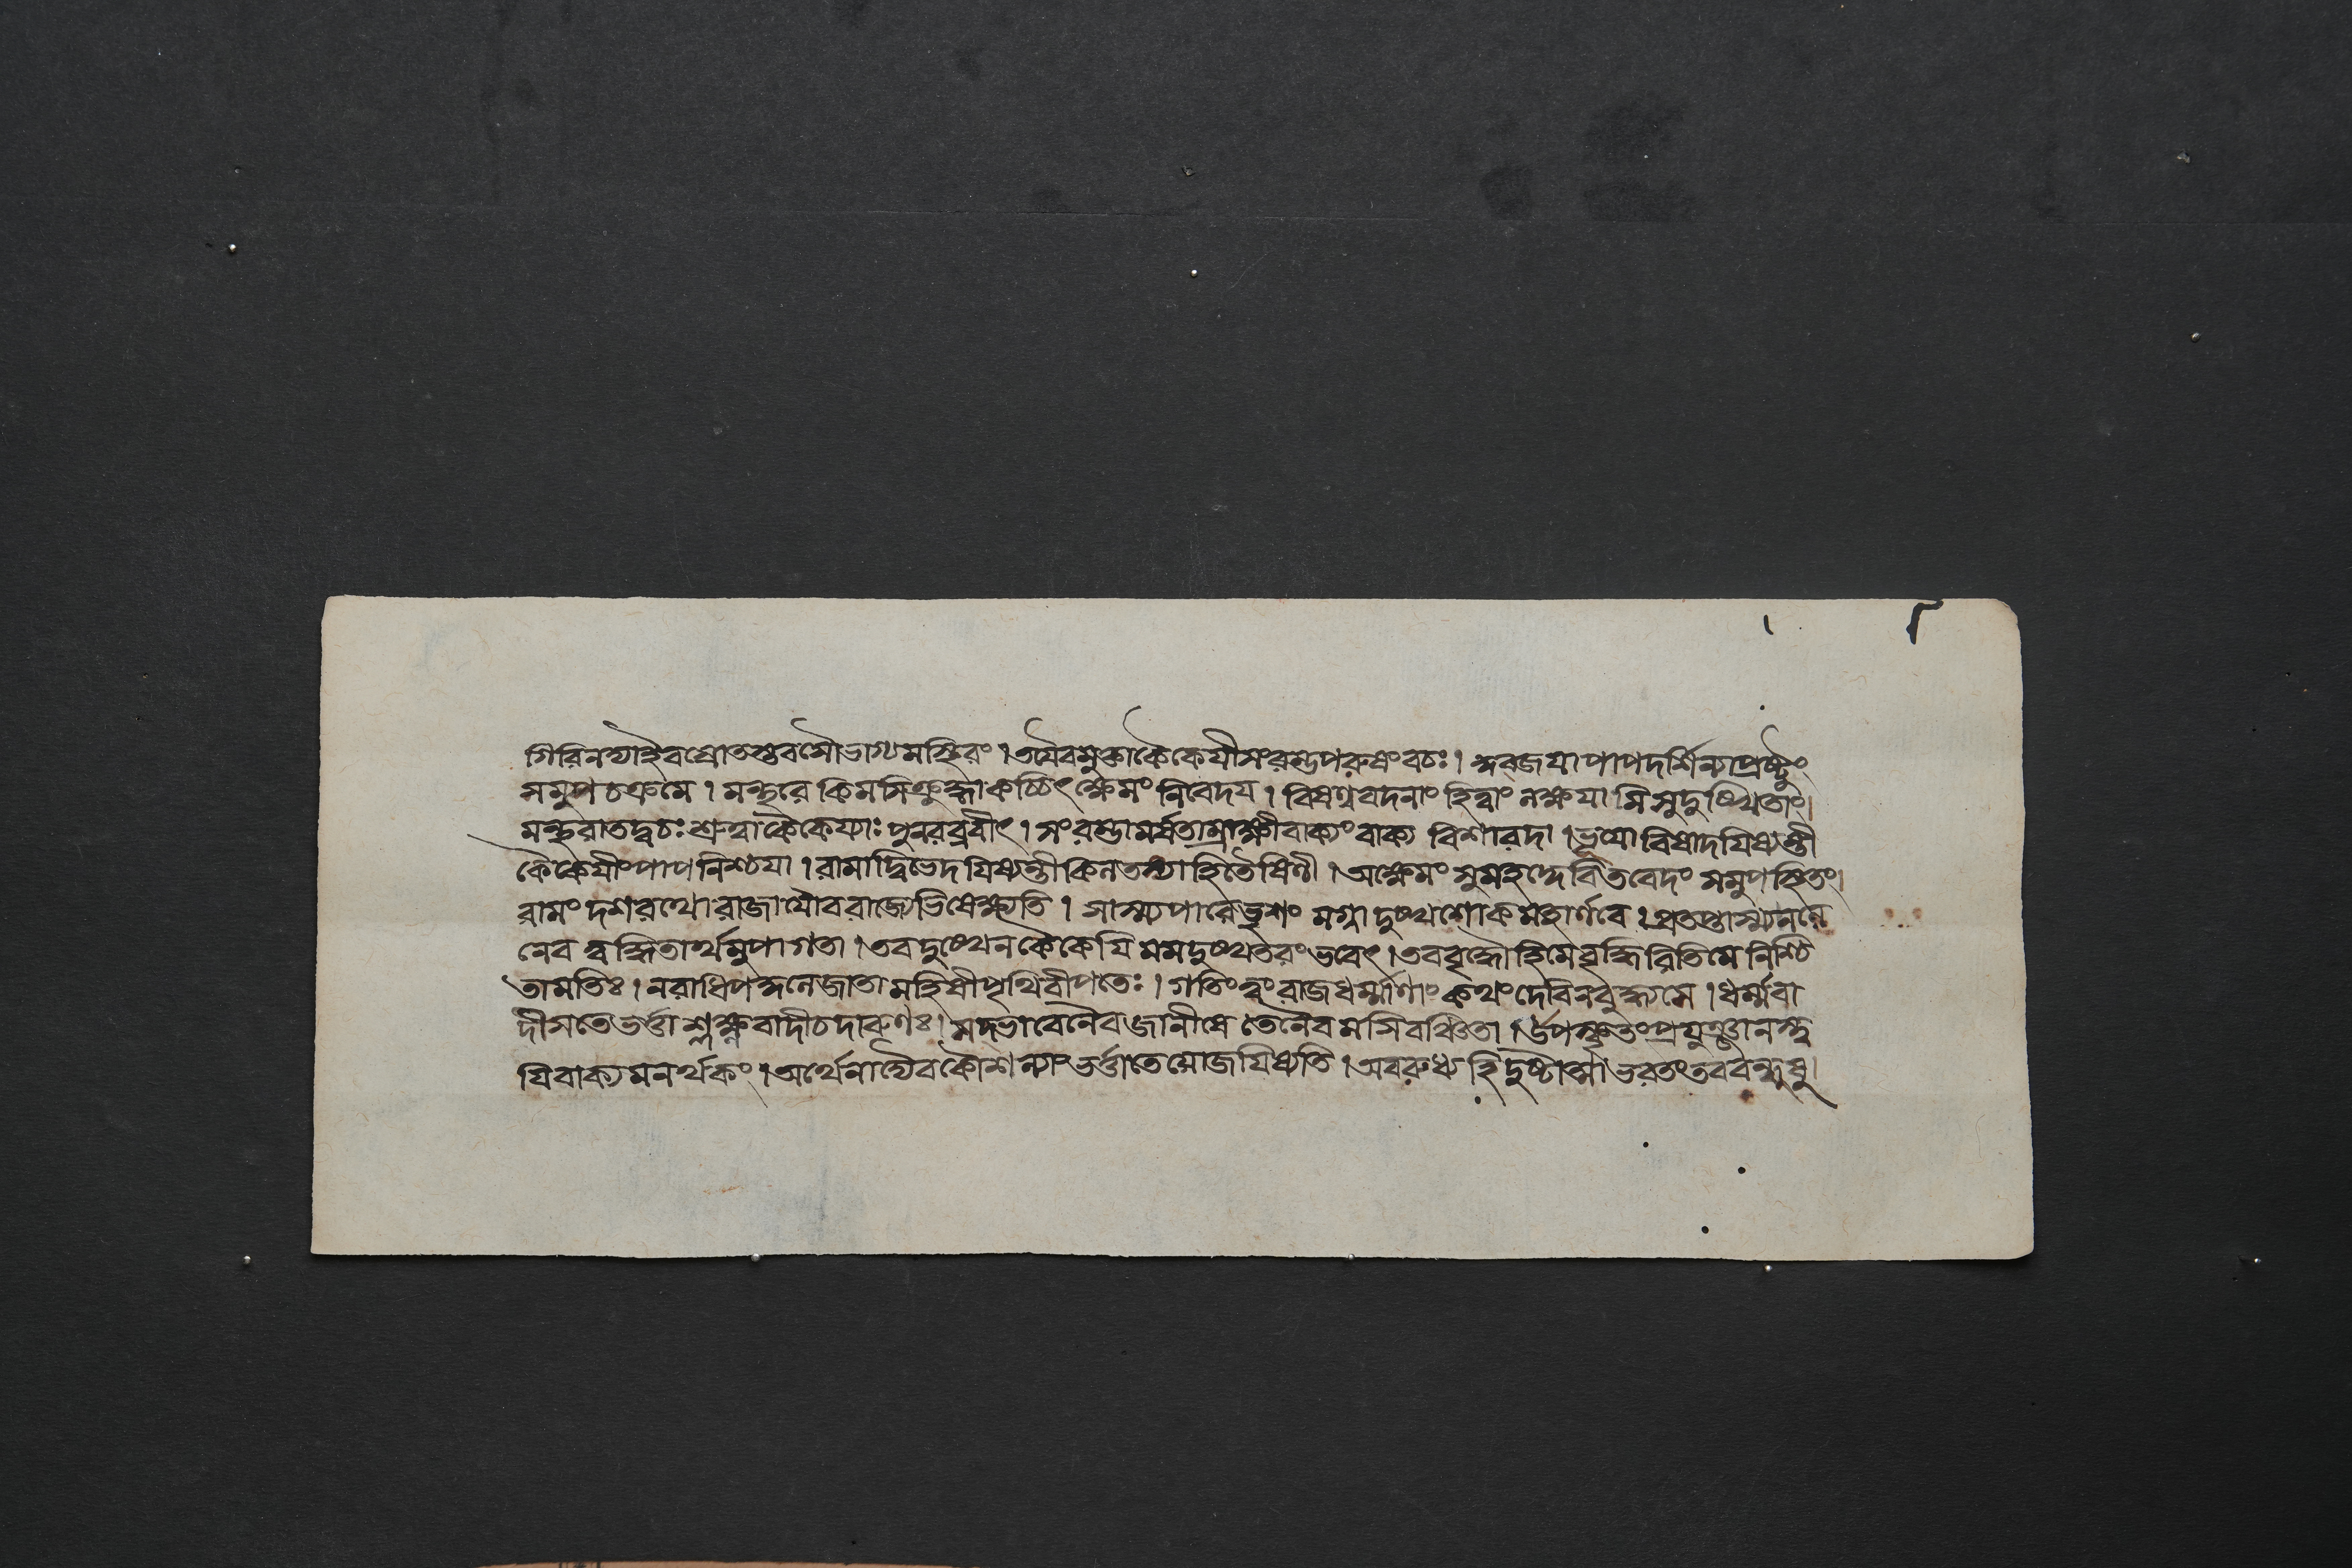 গিরিনদ্যাইবস্রোতস্তবসৌভাগ্যমস্থিরং। তযৈবমুক্তাকৈকেযীসংরব্ধপরুষংবচঃ। কুব্জযাপাপদর্শিন্যাপ্রষ্টুং
সমুপচক্রমে। মন্থরে কিমসিক্রুদ্ধাকচ্চিৎক্ষেমং নিবেদয। বিষণ্ণবদনাং হিত্বাং লক্ষযামিসুদুঃখিতাং।
মন্থরাতদ্বচঃ শ্রুত্বাকৈকেয্যাঃ পুনরব্রবীৎ। সংরব্ধামর্ষতাম্রাক্ষীবাক্যংবাক্য বিশারদা। ভূযোবিষাদযিষ্যন্তী
কৈকেযীংপাপনিশ্চযা। রামাদ্বিভেদযিষ্যন্তীকিলতস্যাহিতৈষিণী। অক্ষেমং সুমহদ্দেবিতবেদং সমুপস্থিতং।
রামং দশরথো রাজাযৌবরাজ্যেভিষেক্ষ্যতি। সাস্ম্যপারেভৃশং মগ্না দুঃখশোকমহার্ণবে। প্রতপ্তাস্ম্যনলে
নেব ত্বদ্ধিতার্থমুপাগতা। তবদুঃখেন কৈকেযি মমদুঃখতরংভবেৎ। তববৃদ্ধৌহিমেবৃদ্ধিরিতিমে নিশ্চি
তামতিঃ। নরাধিপকুলেজাতা মহিষীপৃথিবীপতেঃ। গতিংত্বং রাজধর্ম্মাণাং কথংদেবিনবুদ্ধ্যসে। ধর্ম্মবা
দীসতেভর্ত্তাশ্লক্ষ্ণবাদীচদারুণঃ। সদ্ভাবেনৈবজানীষে তেনৈবমসিবঞ্চিতা। উপস্থিতংপ্রযুঞ্জানস্ত্ব
যিবাক্যমনর্থকং। অর্থেনাদ্যৈবকৌশল্যাংভর্ত্তাতেযোজযিষ্যতি। অবরুধ্যহিদুষ্টাত্মাভরতংতববন্ধুষু।